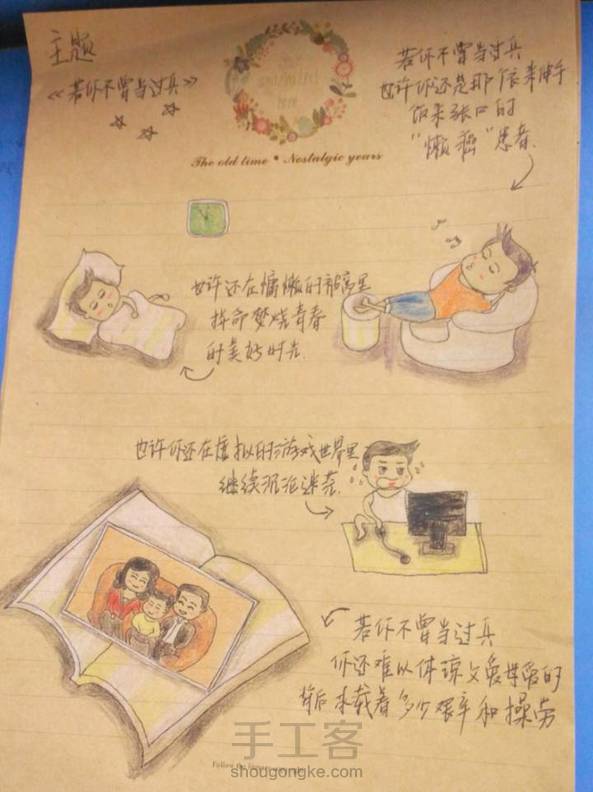 主题
《若你不曾当过兵》
若你不曾当过兵
也许你还是那依来伸手
饭来张口的
“懒癌”患者.
The old time • Nostalgic years
也许还在慵懒的被窝里
拼命焚烧青春
的美好时光.
也许你还在虚拟的游戏世界里
继续沉沦迷茫.
若你不曾当过兵
你还难以体谅父爱母爱的
背后承载着多少艰辛和操劳
手工客
shougongke.com